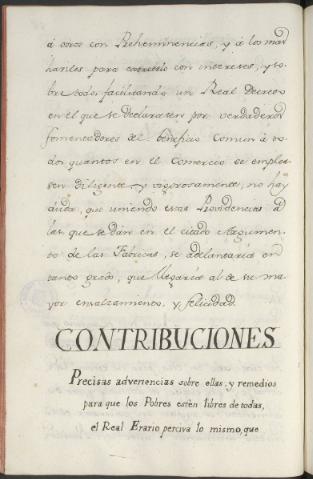 á otros con Preheminencias, y á los mar
chantes para con intereses, y so
bre todo, facilitando un Real Decreto
en el que se declarasen por verdaderos
fomentadores del beneficio comun á to
dos quantos en el Comercio se emplea
sen diligente y vigorosamente, no hay
duda, que uniendo estas Providencias á
las que se dán en el citado Argumen
to de las Fabricas, se adelantaría en
tanto grado, que llegaría al de su ma
yor ensalzamiento, y felicidad.
CONTRIBUCIONES
Precisas advertencias sobre ellas, y remedios
para que los Pobres estèn libres de todas,
el Real Erario perciva lo mismo, que